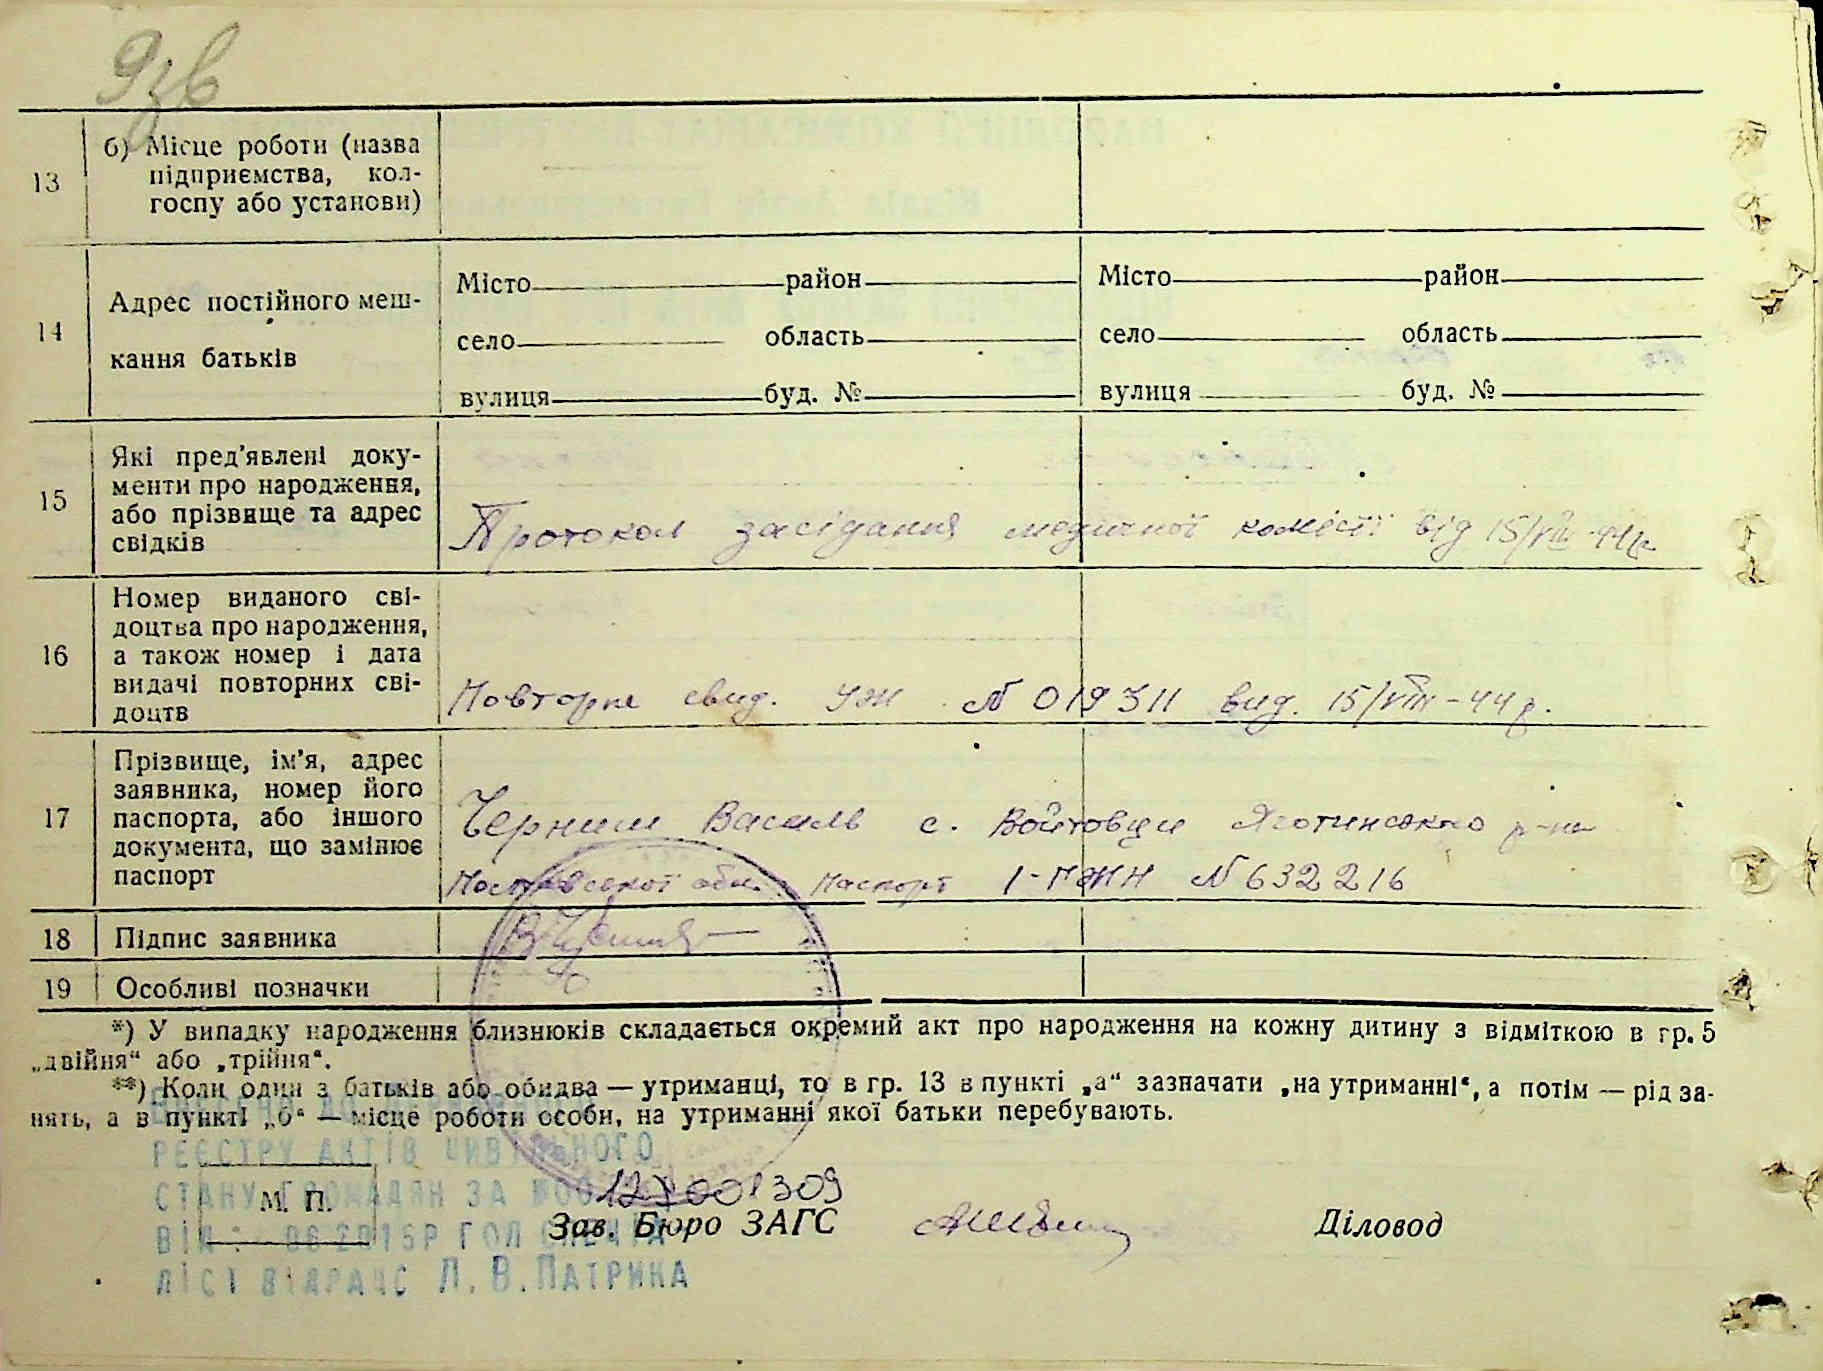 9зв
13
б) Місце роботи (назва
підприємства, кол-
госпу або установи)
14
Адрес постійного меш-
кання батьків
Місто район
село область
вулиця буд. №
Місто район
село область
вулиця буд. №
15
Які пред'явлені доку-
менти про народження,
або прізвище та адрес
свідків
Протокол засідання медичної комісії від 15/VIII-44р.
16
Номер виданого сві-
доцтва про народження,
а також номер і дата
видачі повторних сві-
доцтв
Повторне свид. УЖ № 019311 вид. 15/VIII-44р.
17
Прізвище, ім'я, адрес
заявника, номер його
паспорта, або іншого
документа, що замінює
паспорт
Черниш Василь с. Войтовци Яготинського р-на
Полтавської обл. Паспорт № 632216
18
Підпис заявника
19
Особливі позначки
*) У випадку народження близнюків складається окремий акт про народження на кожну дитину з відміткою в гр. 5
„двійня“ або „трійня“.
**) Коли один з батьків або обидва — утриманці, то в гр. 13 в пункті „а“ зазначати „на утриманні“, а потім — рід за-
нять, а в пункті „б“ — місце роботи особи, на утриманні якої батьки перебувають.
РЕЄСТРУ АКТІВ ЦИВІЛЬНОГО
СТАНУ ГРОМАДЯН ЗА №00127001309
М. П.
ВІД 06 2015Р ГОЛ СПЕЦІА
ЛІСТ ВІДРАЦС Л. В. ПАТРИКА
Зав. Бюро ЗАГС
Діловод